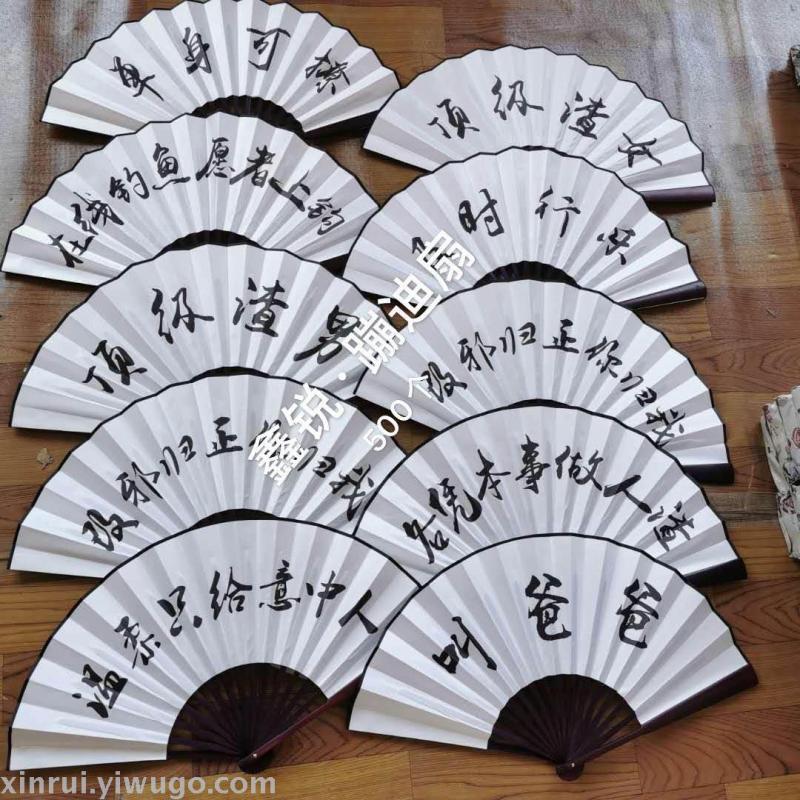 单身可撩
顶级渣女
在线钓魚愿者上钩
时行乐
顶级渣男
改邪归正你归我
改邪归正你归我
各凭本事做人渣
温柔只给意中人
叫爸爸
鑫锐·蹦迪扇
500个
xinrui.yiwugo.com